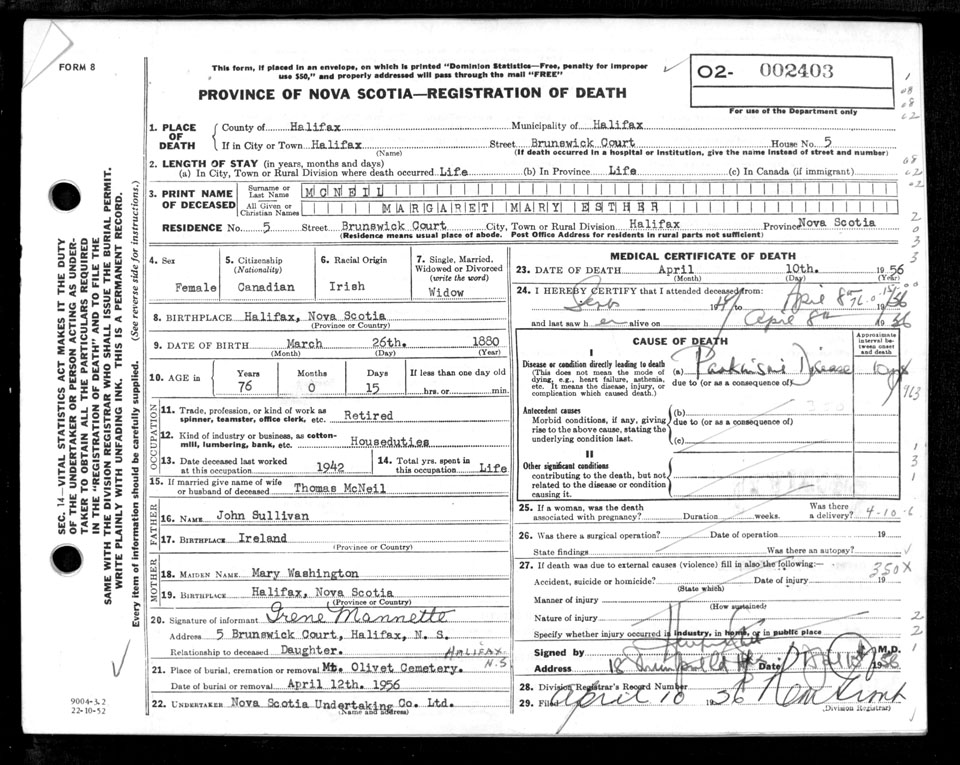 FORM 8
This form, if placed in an envelope, on which is printed "Dominion Statistics—Free, penalty for improper
use $50," and properly addressed will pass through the mail "FREE"
PROVINCE OF NOVA SCOTIA—REGISTRATION OF DEATH
02- 002403
For use of the Department only
SEC. 14—VITAL STATISTICS ACT MAKES IT THE DUTY
OF THE UNDERTAKER OR PERSON ACTING AS UNDER-
TAKER TO OBTAIN ALL THE PARTICULARS REQUIRED
IN THE "REGISTRATION OF DEATH" AND TO FILE THE
SAME WITH THE DIVISION REGISTRAR WHO SHALL ISSUE THE BURIAL PERMIT.
WRITE PLAINLY WITH UNFADING INK. THIS IS A PERMANENT RECORD.
Every item of information should be carefully supplied. (See reverse side for instructions.)
1. PLACE OF DEATH
County of Halifax Municipality of Halifax
If in City or Town Halifax Street Brunswick Court House No. 5
(Name) (If death occurred in a hospital or institution, give the name instead of street and number)
2. LENGTH OF STAY (in years, months and days)
(a) In City, Town or Rural Division where death occurred Life (b) In Province Life (c) In Canada (if immigrant)
3. PRINT NAME OF DECEASED
Surname or Last Name MCNEIL
All Given or Christian Names MARGARET MARY ESTHER
RESIDENCE No. 5 Street Brunswick Court City, Town or Rural Division Halifax Province Nova Scotia
(Residence means usual place of abode. Post Office Address for residents in rural parts not sufficient)
4. Sex Female
5. Citizenship (Nationality) Canadian
6. Racial Origin Irish
7. Single, Married, Widowed or Divorced (write the word) Widow
8. BIRTHPLACE Halifax, Nova Scotia
(Province or Country)
9. DATE OF BIRTH March 26th. 1880
(Month) (Day) (Year)
10. AGE in Years 76 Months 0 Days 15 If less than one day old hrs. or min.
OCCUPATION
11. Trade, profession, or kind of work as
spinner, teamster, office clerk, etc. Retired
12. Kind of industry or business, as cotton-
mill, lumbering, bank, etc. Houseduties
13. Date deceased last worked
at this occupation 1942
14. Total yrs. spent in
this occupation Life
15. If married give name of wife
or husband of deceased Thomas McNeil
FATHER
16. NAME John Sullivan
17. BIRTHPLACE Ireland
(Province or Country)
MOTHER
18. MAIDEN NAME Mary Washington
19. BIRTHPLACE Halifax, Nova Scotia
(Province or Country)
20. Signature of informant Irene Mannette
Address 5 Brunswick Court, Halifax, N. S.
Relationship to deceased Daughter.
HALIFAX
N.S
21. Place of burial, cremation or removal Mt. Olivet Cemetery.
Date of burial or removal April 12th. 1956
22. UNDERTAKER Nova Scotia Undertaking Co. Ltd.
(Name and address)
MEDICAL CERTIFICATE OF DEATH
23. DATE OF DEATH April 10th. 1956
(Month) (Day) (Year)
24. I HEREBY CERTIFY that I attended deceased from:
to April 8th
and last saw h er alive on April 8th 1956
CAUSE OF DEATH
Approximate interval between onset and death
I
Disease or condition directly leading to death
(This does not mean the mode of
dying, e.g., heart failure, asthenia,
etc. It means the disease, injury, or
complication which caused death.)
(a) Parkinsons Disease
due to (or as a consequence of)
Antecedent causes
Morbid conditions, if any, giving
rise to the above cause, stating the
underlying condition last.
(b)
due to (or as a consequence of)
(c)
II
Other significant conditions
contributing to the death, but not
related to the disease or condition
causing it.
25. If a woman, was the death
associated with pregnancy? Duration weeks. Was there a delivery?
26. Was there a surgical operation? Date of operation 19
State findings Was there an autopsy?
27. If death was due to external causes (violence) fill in also the following:
350X
Accident, suicide or homicide? Date of injury 19
(State which)
Manner of injury
(How sustained)
Nature of injury
Specify whether injury occurred in industry, in home, or in public place
Signed by M.D.
Address Date 1956
28. Division Registrar's Record Number
29. Filed April 10 1956
(Division Registrar)
9004-3.2
22-10-52